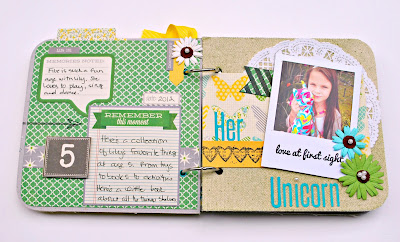 MEMORABLE NOTES
Five is such a fun
age with Lily. She
loves to play, sing
and dance.
2012
REMEMBER
this moment
Here's a collection
of Lily's favorite things
at age 5. From toys
to books to activities
Here's a little book
about all to things
5
Her
love at first sight
Unicorn